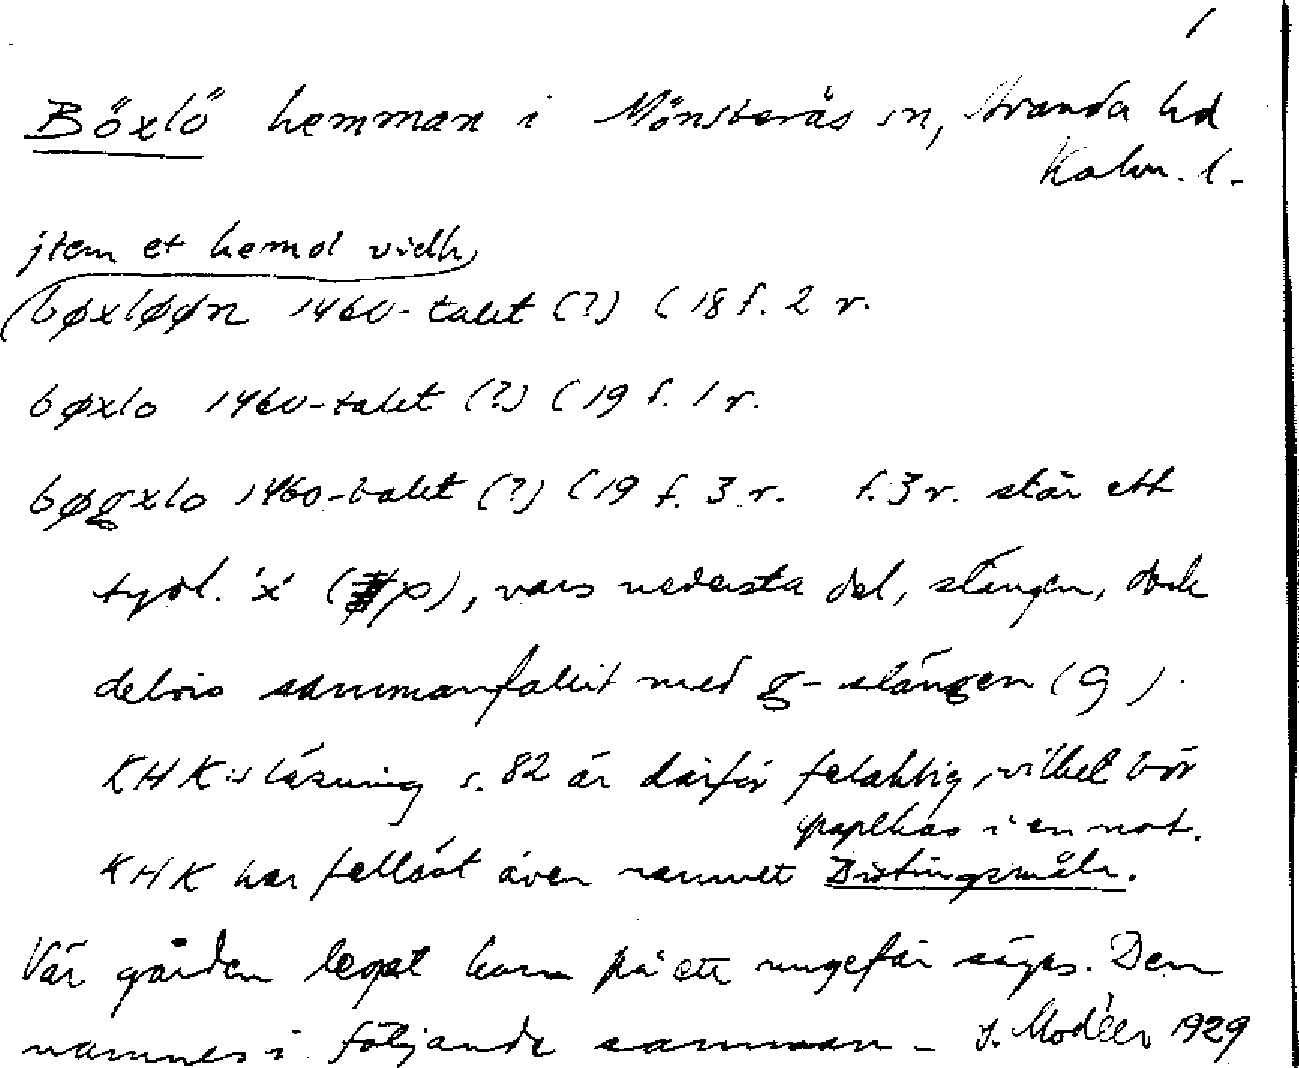 1
Böxlö hemman i Mönsterås sn, Stranda hd
Kalm. l.
jtem et hemol vidh
bøxløøn 1460-talet (?) C 18 f. 2 r.
bøxlo 1460-talet (?) C 19 f. 1 r.
bøgxlo 1460-talet (?) C 19 f. 3 r. f. 3 r. står ett
tydl. 'x' ( ), vars nedersta del, slängen, dock
delvis sammanfallit med g-slängen (g).
KHK:s läsning s. 82 är därför felaktig, vilket bör
påpekas i en not.
KHK har felläst även namnet Bistingsmåla.
Var gården legat kan på ett ungefär sägas. Den
namnes i följande samman- I. Modéer 1929